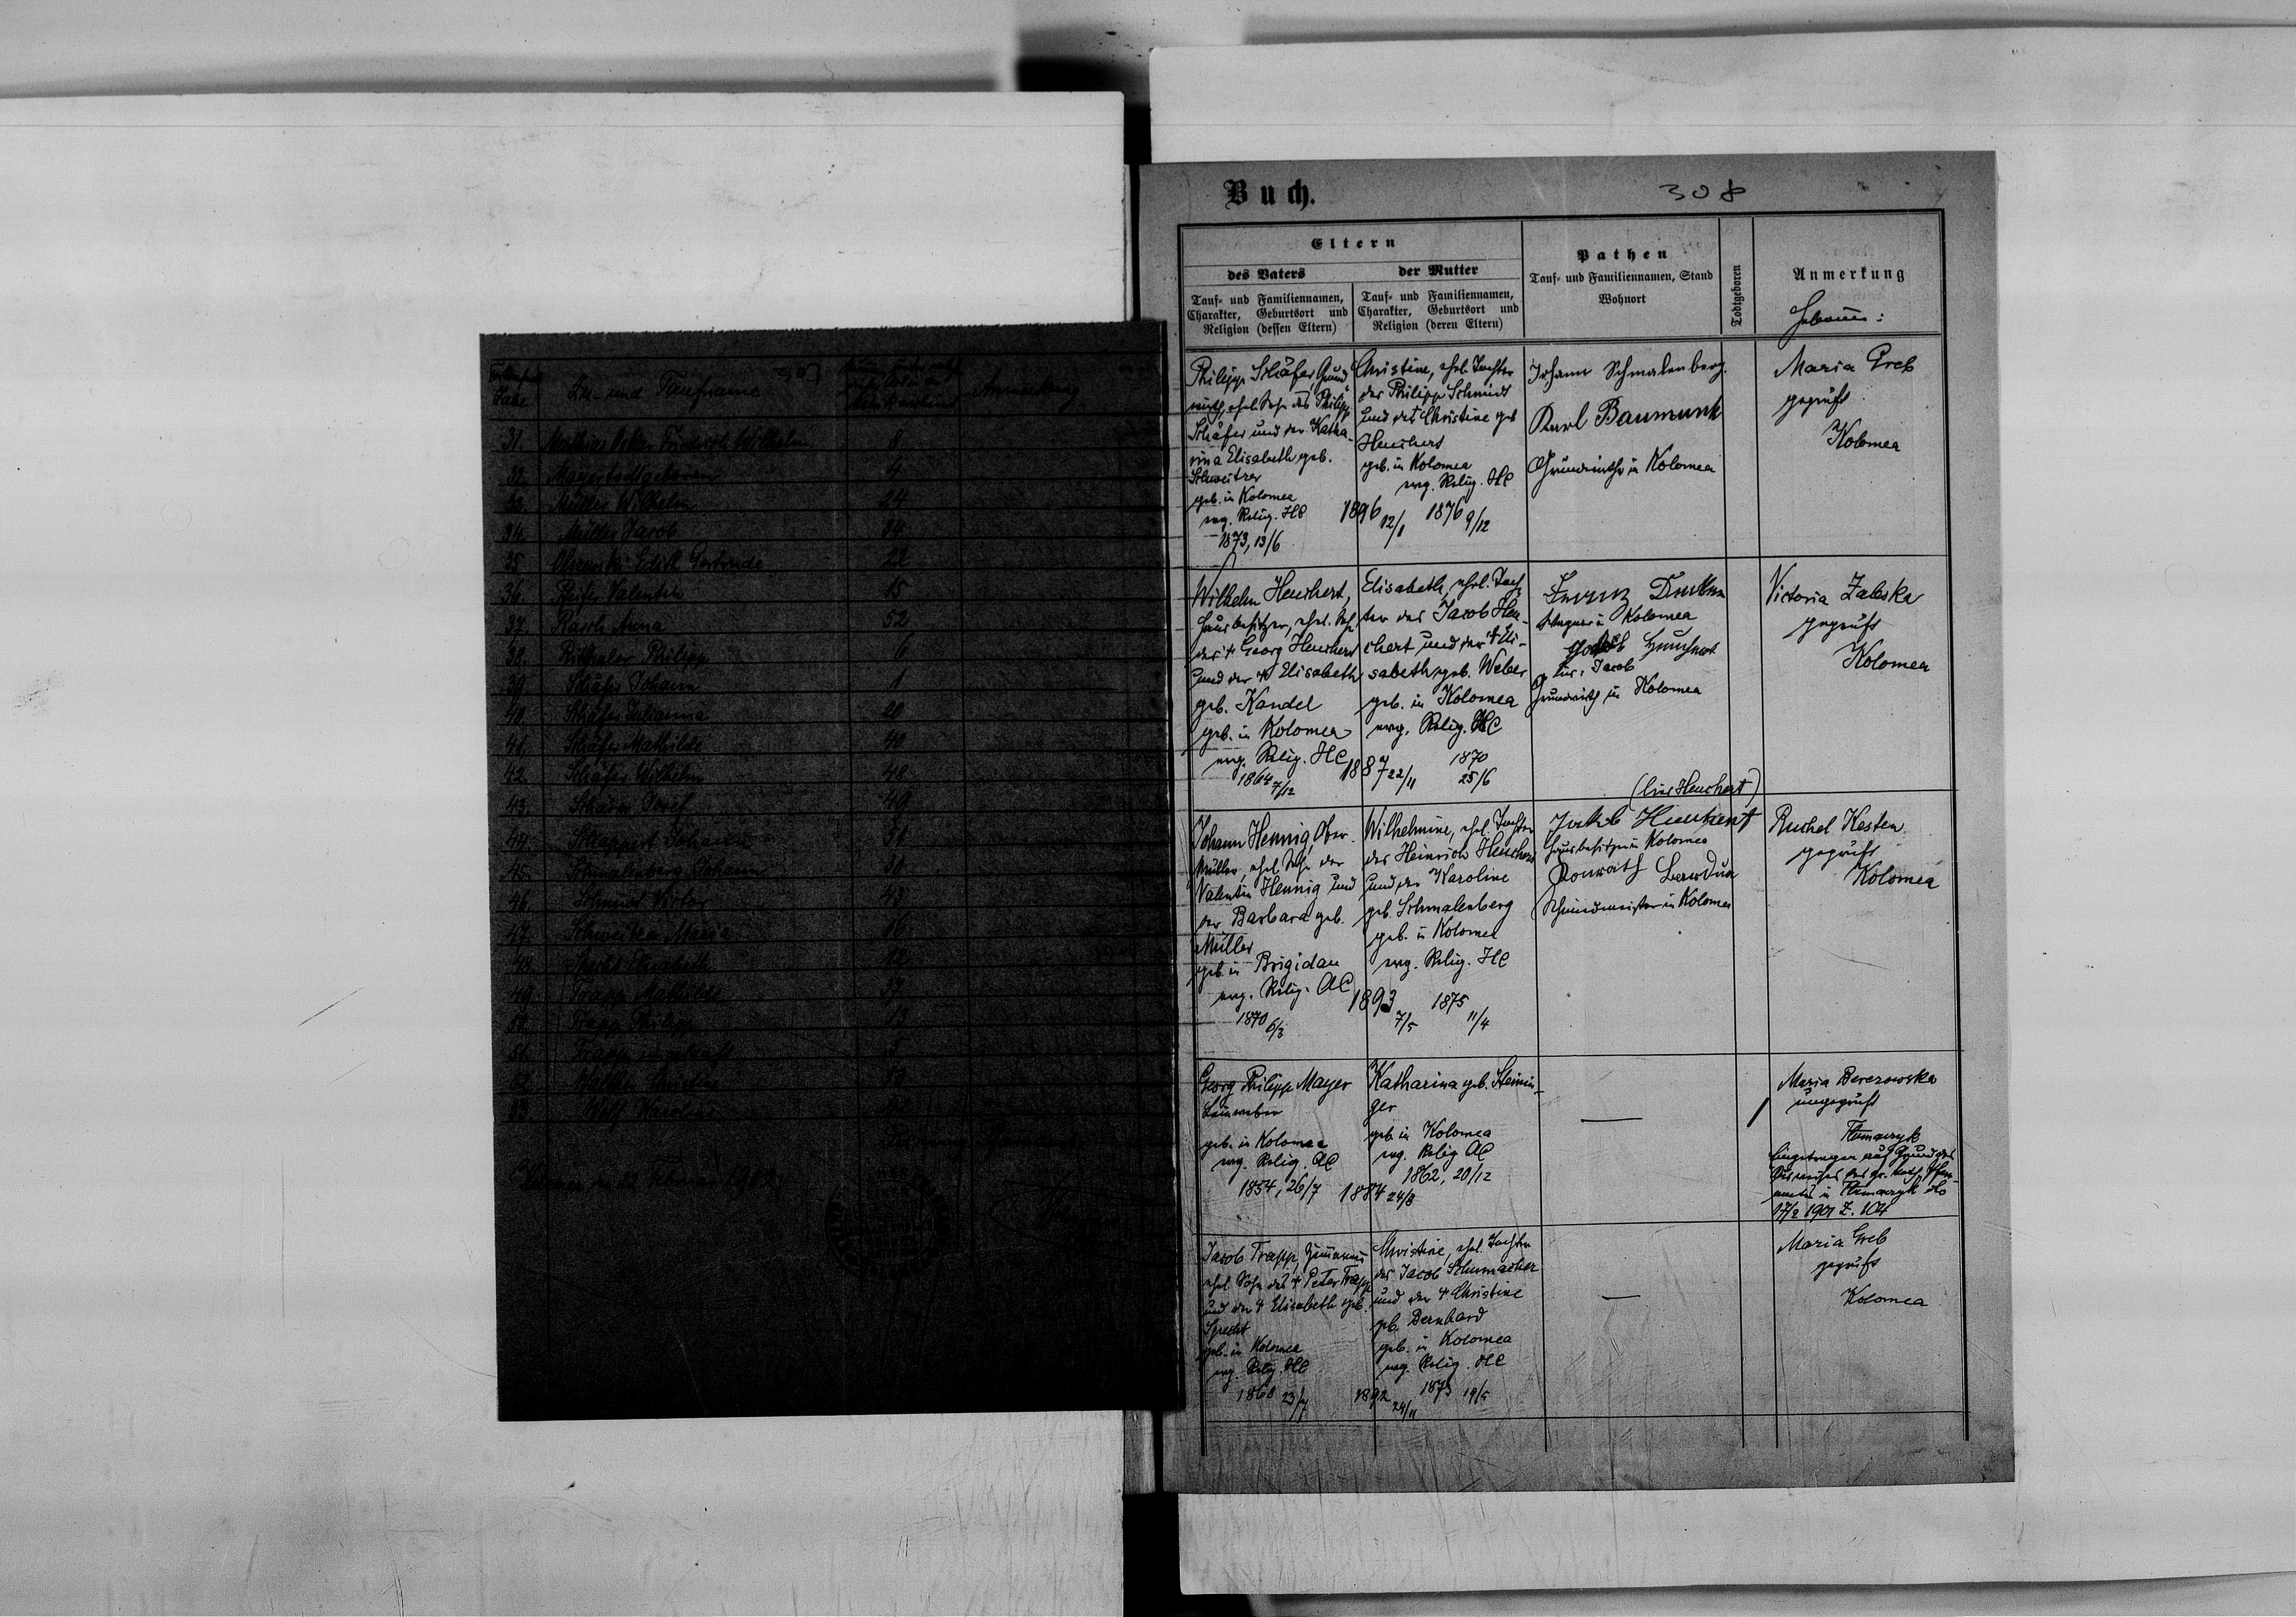 Zu- und Taufname
Anmerkung
31. Mathias Oskar Friedrich Wilhelm 8
32. Mayer todtgeboren 4
33. Müller Wilhelm 24
34. Müller Jacob 34
35 Edith Gertrude 22
36. Peifer Valentin 15
37. Rasch Anna 52
38. Ritthaler Philipp 6
39. Schäfer Johann 1
40. Schäfer Julianna 20
41. Schäfer Mathilde 40
42. Schäfer Wilhelm 48
43. Josef 49
44. Johann
45. Schmalenberg Johann 30
46. Schmidt 43
47. Schweitzer Maria 16
48. Elisabeth 12
49. Trapp Mathilde 37
50. Trapp Philipp 13
51. Trapp ungetauft 5
52. Christine
53. Wolf
Buch.
308
Eltern
des Vaters
Tauf- und Familiennamen,
Charakter, Geburtsort und
Religion (dessen Eltern)
der Mutter
Tauf- und Familiennamen,
Charakter, Geburtsort und
Religion (deren Eltern)
Pathen
Tauf- und Familiennamen, Stand
Wohnort
Todtgeboren
Anmerkung
Philipp Schäfer, Grund
wirth, ehel. Sohn des Philipp
Schäfer und der Katha-
rina Elisabeth geb.
Schweitzer
geb. in Kolomea
evg. Relig. HC
1873, 13/6
1896 12/1
Christine, ehel. Tochter
des Philipp Schmidt
und der Christine geb
Heuchert
geb. in Kolomea
evg. Relig. HC
1876 9/12
Johann Schmalenberg.
Karl Baumunk
Grundwirthe in Kolomea
Maria Greb
geprüft
Kolomea
Wilhelm Heuchert,
Hausbesitzer, ehel. Sohn
des + Georg Heuchert
und der + Elisabeth
geb. Kandel
geb. in Kolomea
evg. Relig. HC
1864 7/12
1887 22/11
Elisabeth, ehel. Toch-
ter des Jacob Heu-
chert und der + Eli-
sabeth geb. Weber
geb. in Kolomea
evg. Relig. HC
1870
25/6
Franz
in Kolomea
Jacob Heuchert
Jacob
Grundwirth in Kolomea
Victoria Zaleska
geprüft
Kolomea
Johann Hennig, Ober-
müller, ehel. Sohn des
Valentin Hennig und
der Barbara geb.
Müller
geb. in Brigidau
evg. Relig. AC
1870 6/3
1893 7/5
Wilhelmine, ehel. Tochter
des Heinrich Heuchert
und der Karoline
geb. Schmalenberg
geb. in Kolomea
evg. Relig. HC
1875
11/4
(lies Heuchert)
Jakob Heuchert
Hausbesitzer in Kolomea
Konrath
Schmiedmeister in Kolomea
Ruchel Kesten
geprüft
Kolomea
Georg Philipp Mayer
Leinweber
geb. in Kolomea
evg. Relig. AC
1854, 26/7
1884 24/8
Katharina geb. Steinin-
ger
geb. in Kolomea
evg. Relig AC
1862, 20/12
—
1
Maria Berezowska
ungeprüft
Tłumaczyk
Eingetragen auf Grund des
Ausweises des gr. kath. Pfarr-
amtes in Tłumaczyk dto
17/2 1901 Z. 104
Jacob Trapp, Zimmermann
ehel. Sohn des + Peter Trapp
und der + Elisabeth geb.
Specht
geb. in Kolomea
evg. Relig. HC
1860 23/7
1892 24/11
Christine, ehel. Tochter
des Jacob Schumacher
und der + Christine
geb. Bernhard
geb. in Kolomea
evg. Relig. HC
1873 19/5
—
Maria Greb
geprüft
Kolomea